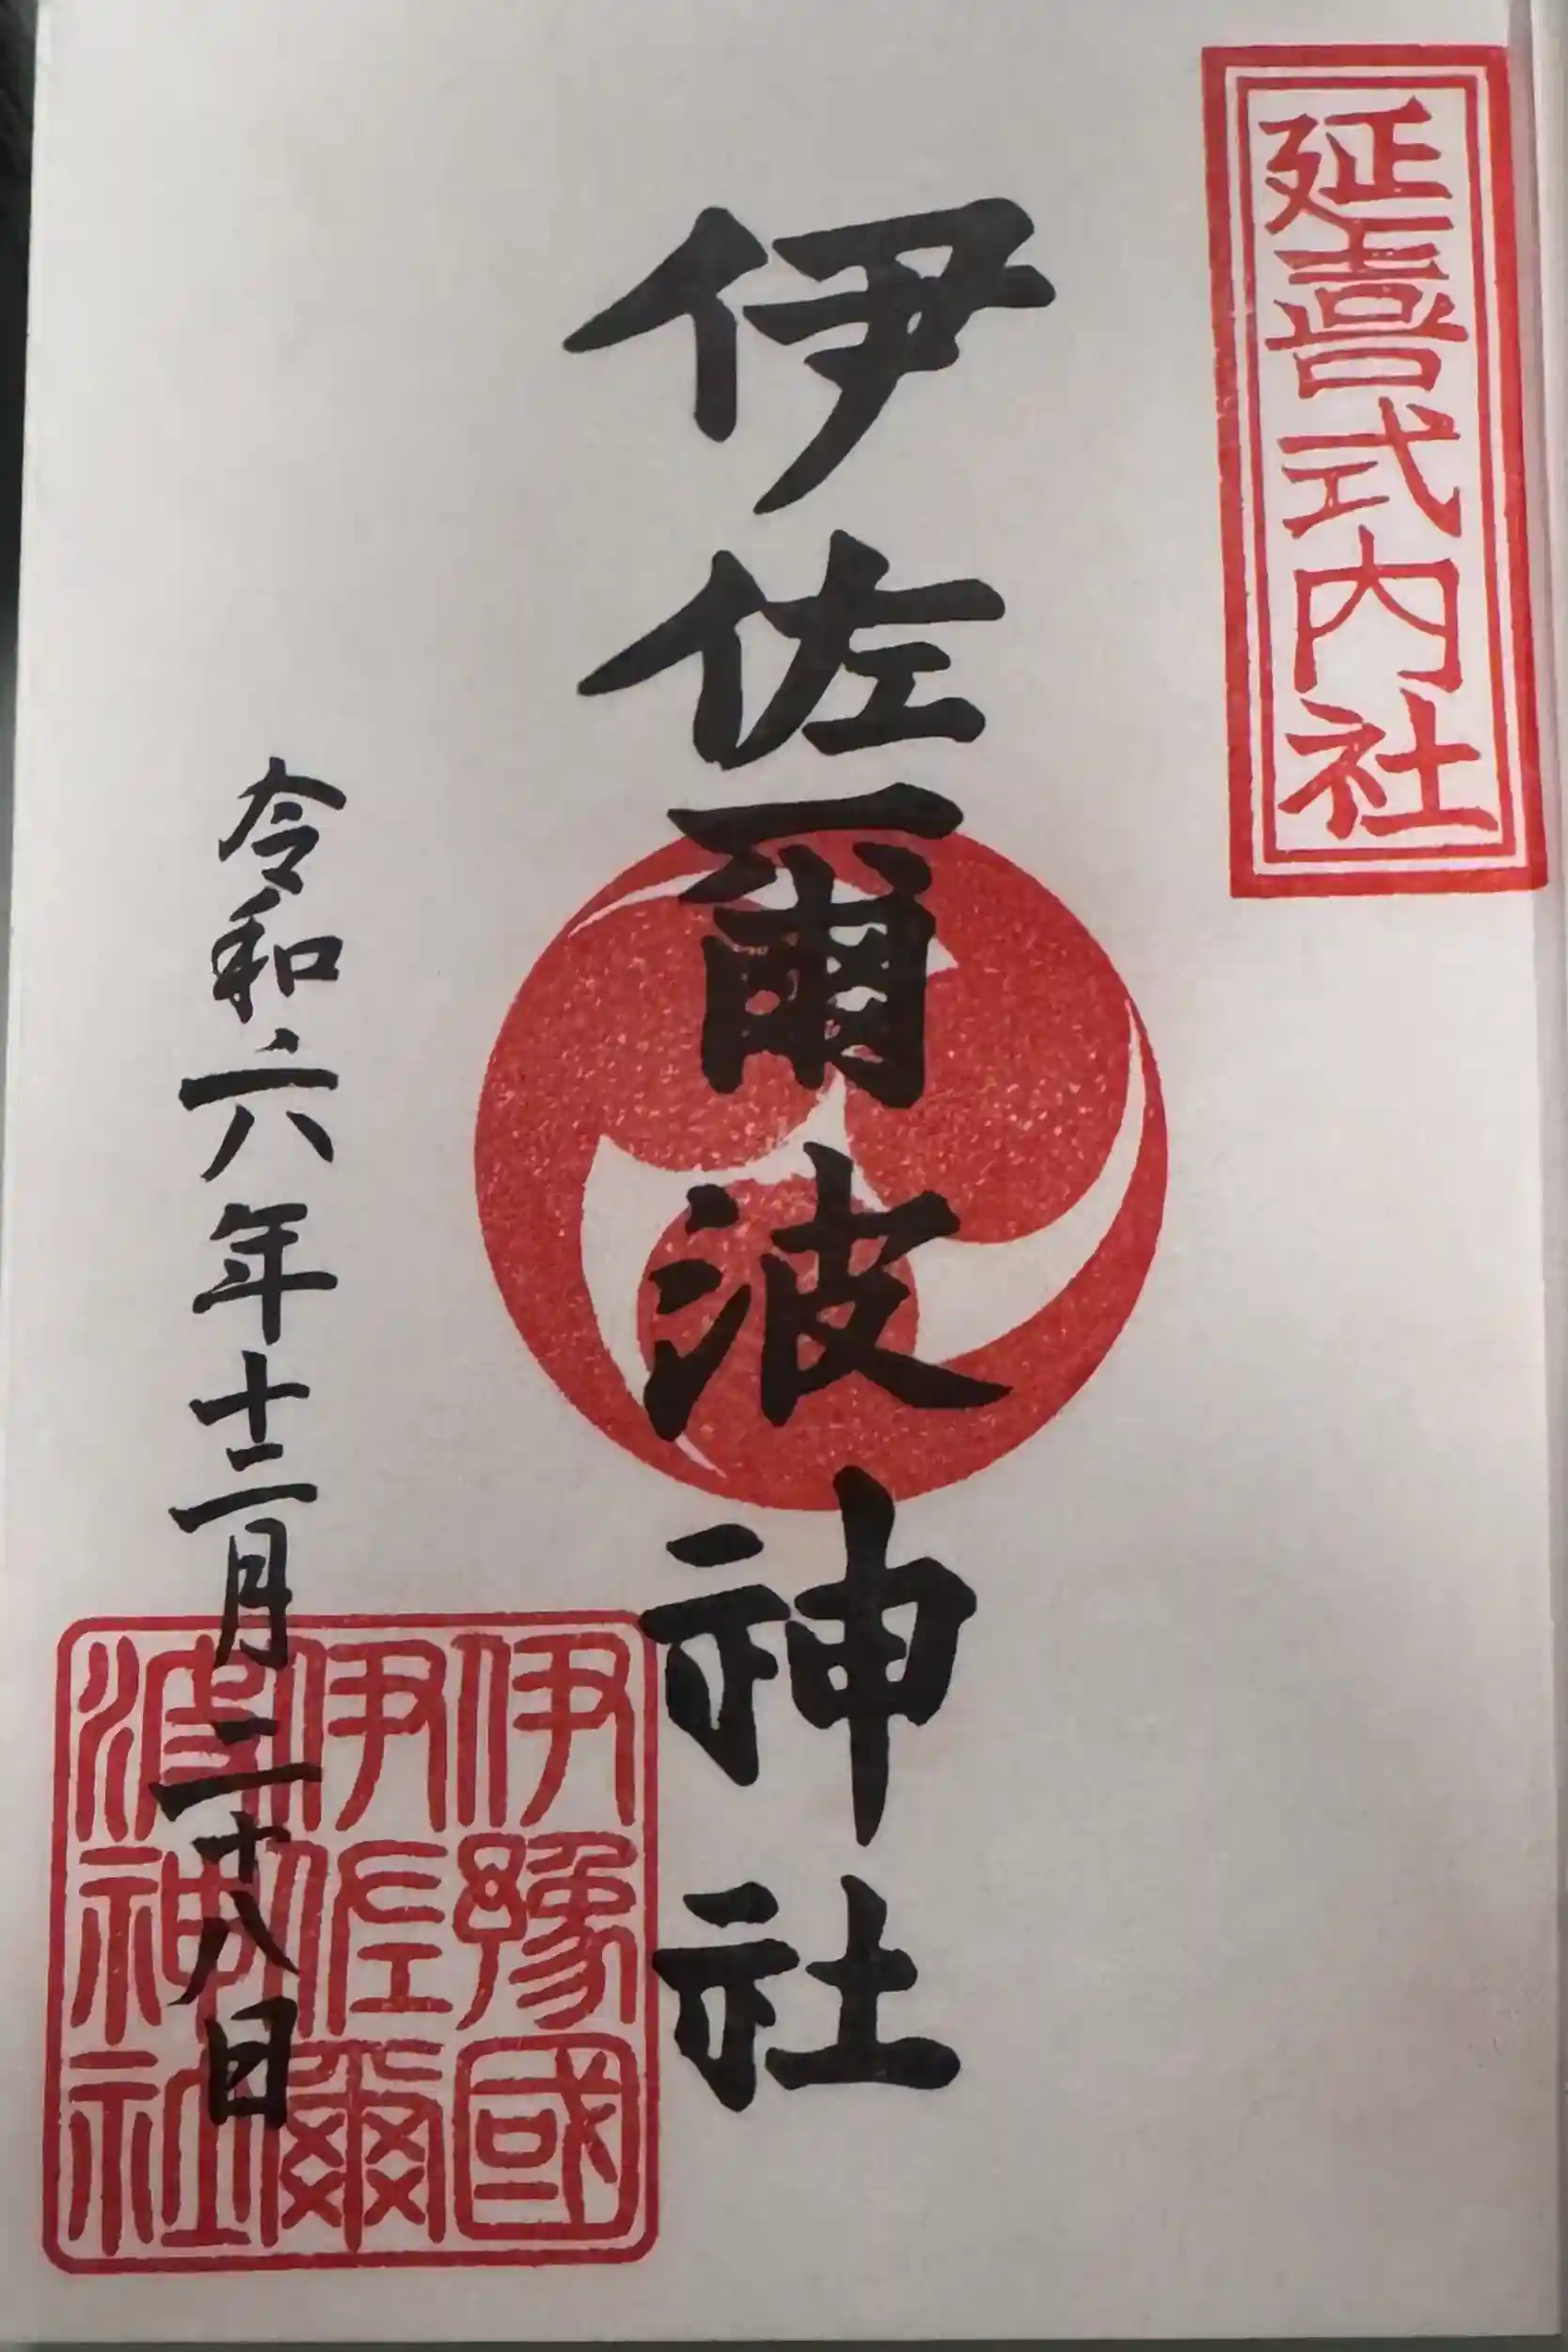 延喜式内社
伊佐爾波神社
令和六年十二月二十八日
伊豫國
伊佐爾
波神社